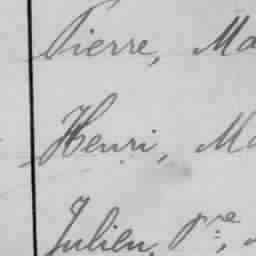 Pierre, Ma
Henri, Ma
Julien, Pre,